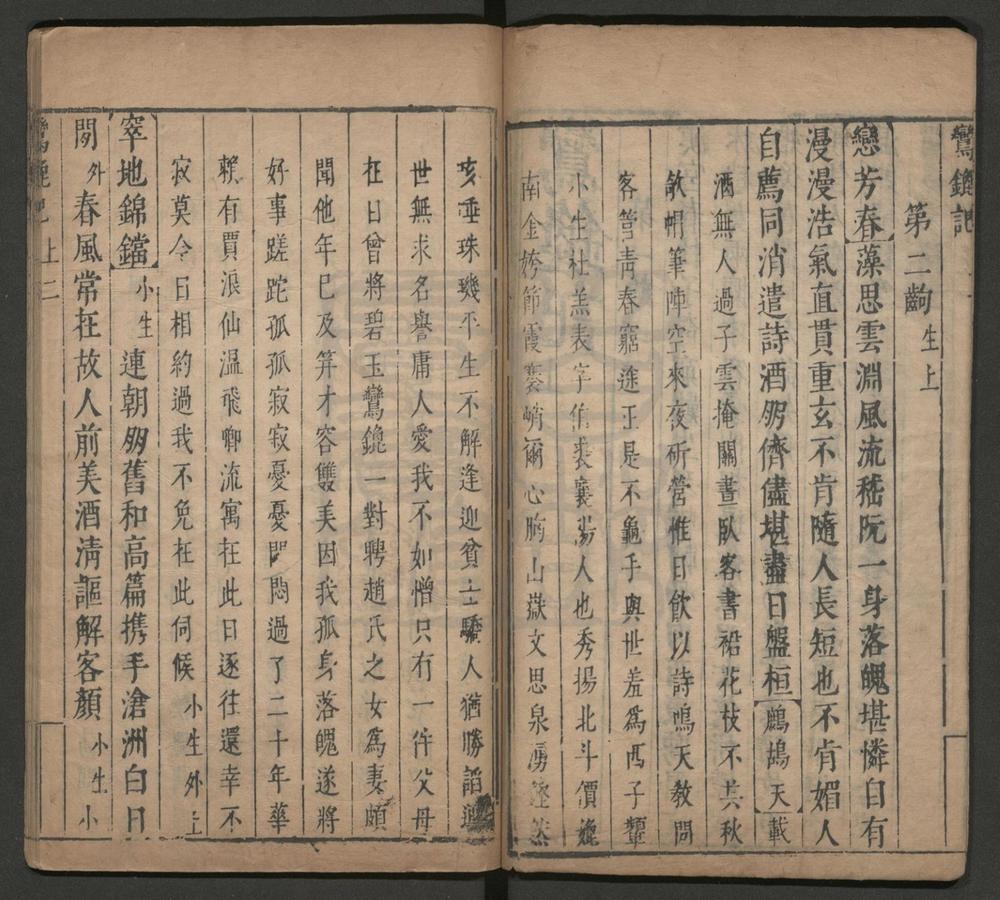 鸞鎞記
第二齣 生上
戀芳春】藻思雲淵風流嵇阮一身落魄堪憐自有
漫漫浩氣直貫重玄不肯隨人長短也不肯媚人
自薦同消遣詩酒朋儕儘堪盡日盤桓【鷓鴣天】載
酒無人過子雲掩關晝臥客書裙花枝不共秋
欹帽筆陣空來夜斫營惟日飲以詩鳴天教問
客管青春窮途正是不龜手與世羞爲西子顰
小生杜羔表字襄陽人也秀揚北斗價
南金節霞峭爾心胸山嶽文思泉湧
珠璣平生不解逢迎貧士驕人猶勝諂
世無求名譽庸人愛我不如憎只有一件父母
在日曾將碧玉鸞鎞一對聘趙氏之女爲妻頗
聞他年已及筓才容雙美因我孤身落魄遂將
好事蹉跎孤孤寂寂憂憂悶悶過了二十年華
賴有賈浪仙温飛卿流寓在此日逐往還幸不
寂莫今日相約過我不免在此伺候 小生外上
窣地錦鐺】小生連朝朋舊和高篇携手滄洲白日
閒外春風常在故人前美酒淸謳解客顏小生小
鸞鎞記 上 二